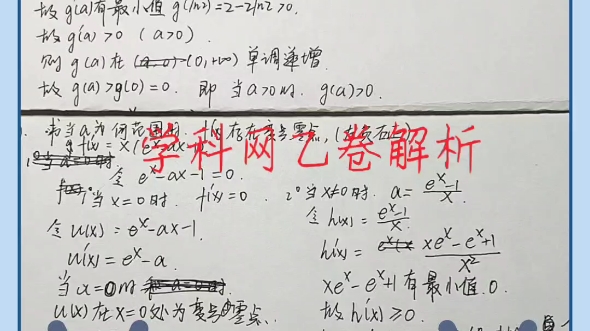 故 g'(a) 有最小值 g'(ln2)=2-2ln2>0.
故 g'(a)>0 (a>0).
则 g(a) 在 (0,+∞) 单调递增.
故 g(a)>g(0)=0. 即 当 a>0 时. g(a)>0.
求当 a 为何范围时. f(x) 存在变号零点,
f(x) = x(e^x-ax-
学科网乙卷解析
令 e^x-ax-1=0.
1° 当 x=0 时. f'(x)=0. 2° 当 x≠0 时. a=(e^x-1)/x.
令 u(x)=e^x-ax-1.
令 h(x)=(e^x-1)/x.
u'(x)=e^x-a.
h'(x)=(xe^x-e^x+1)/x^2
当 a=0 时
xe^x-e^x+1 有最小值.0.
u(x) 在 x=0 处为变号零点.
故 h'(x)≥0.